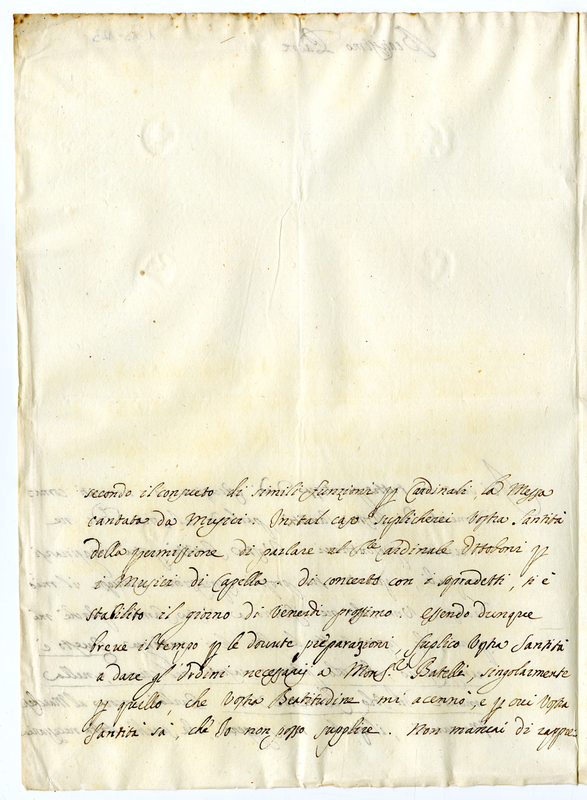 secondo il consueto di simili funzioni p Cardinali, la Messa
cantata da Musici. In tal caso suplicherei Vostra Santità
della permissione di parlare al Sr. Cardinale Ottoboni p
i Musici di Capella. di concerto con i sopradetti, si è
stabilito il giorno di Venerdì prossimo. essendo dunque
breve il tempo p le dovute preparazioni, suplico Vostra Santità
a dare gl' Ordini necessarij a Mons.r Batelli, singolarmente
p quello che Vostra Beatitudine mi acennò, e p cui Vostra
Santità sà, che Io non posso supplire. Non mancai di rappre